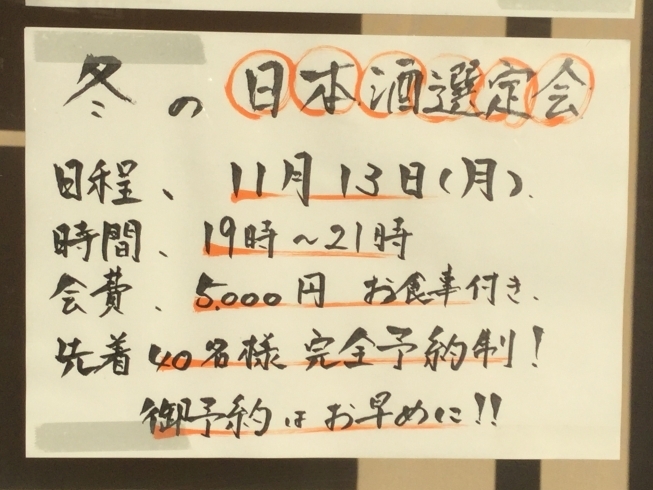 冬の日本酒選定会
日程、11月13日(月)、
時間、19時~21時
会費、5,000円 お食事付き、
先着40名様 完全予約制!
御予約はお早めに!!